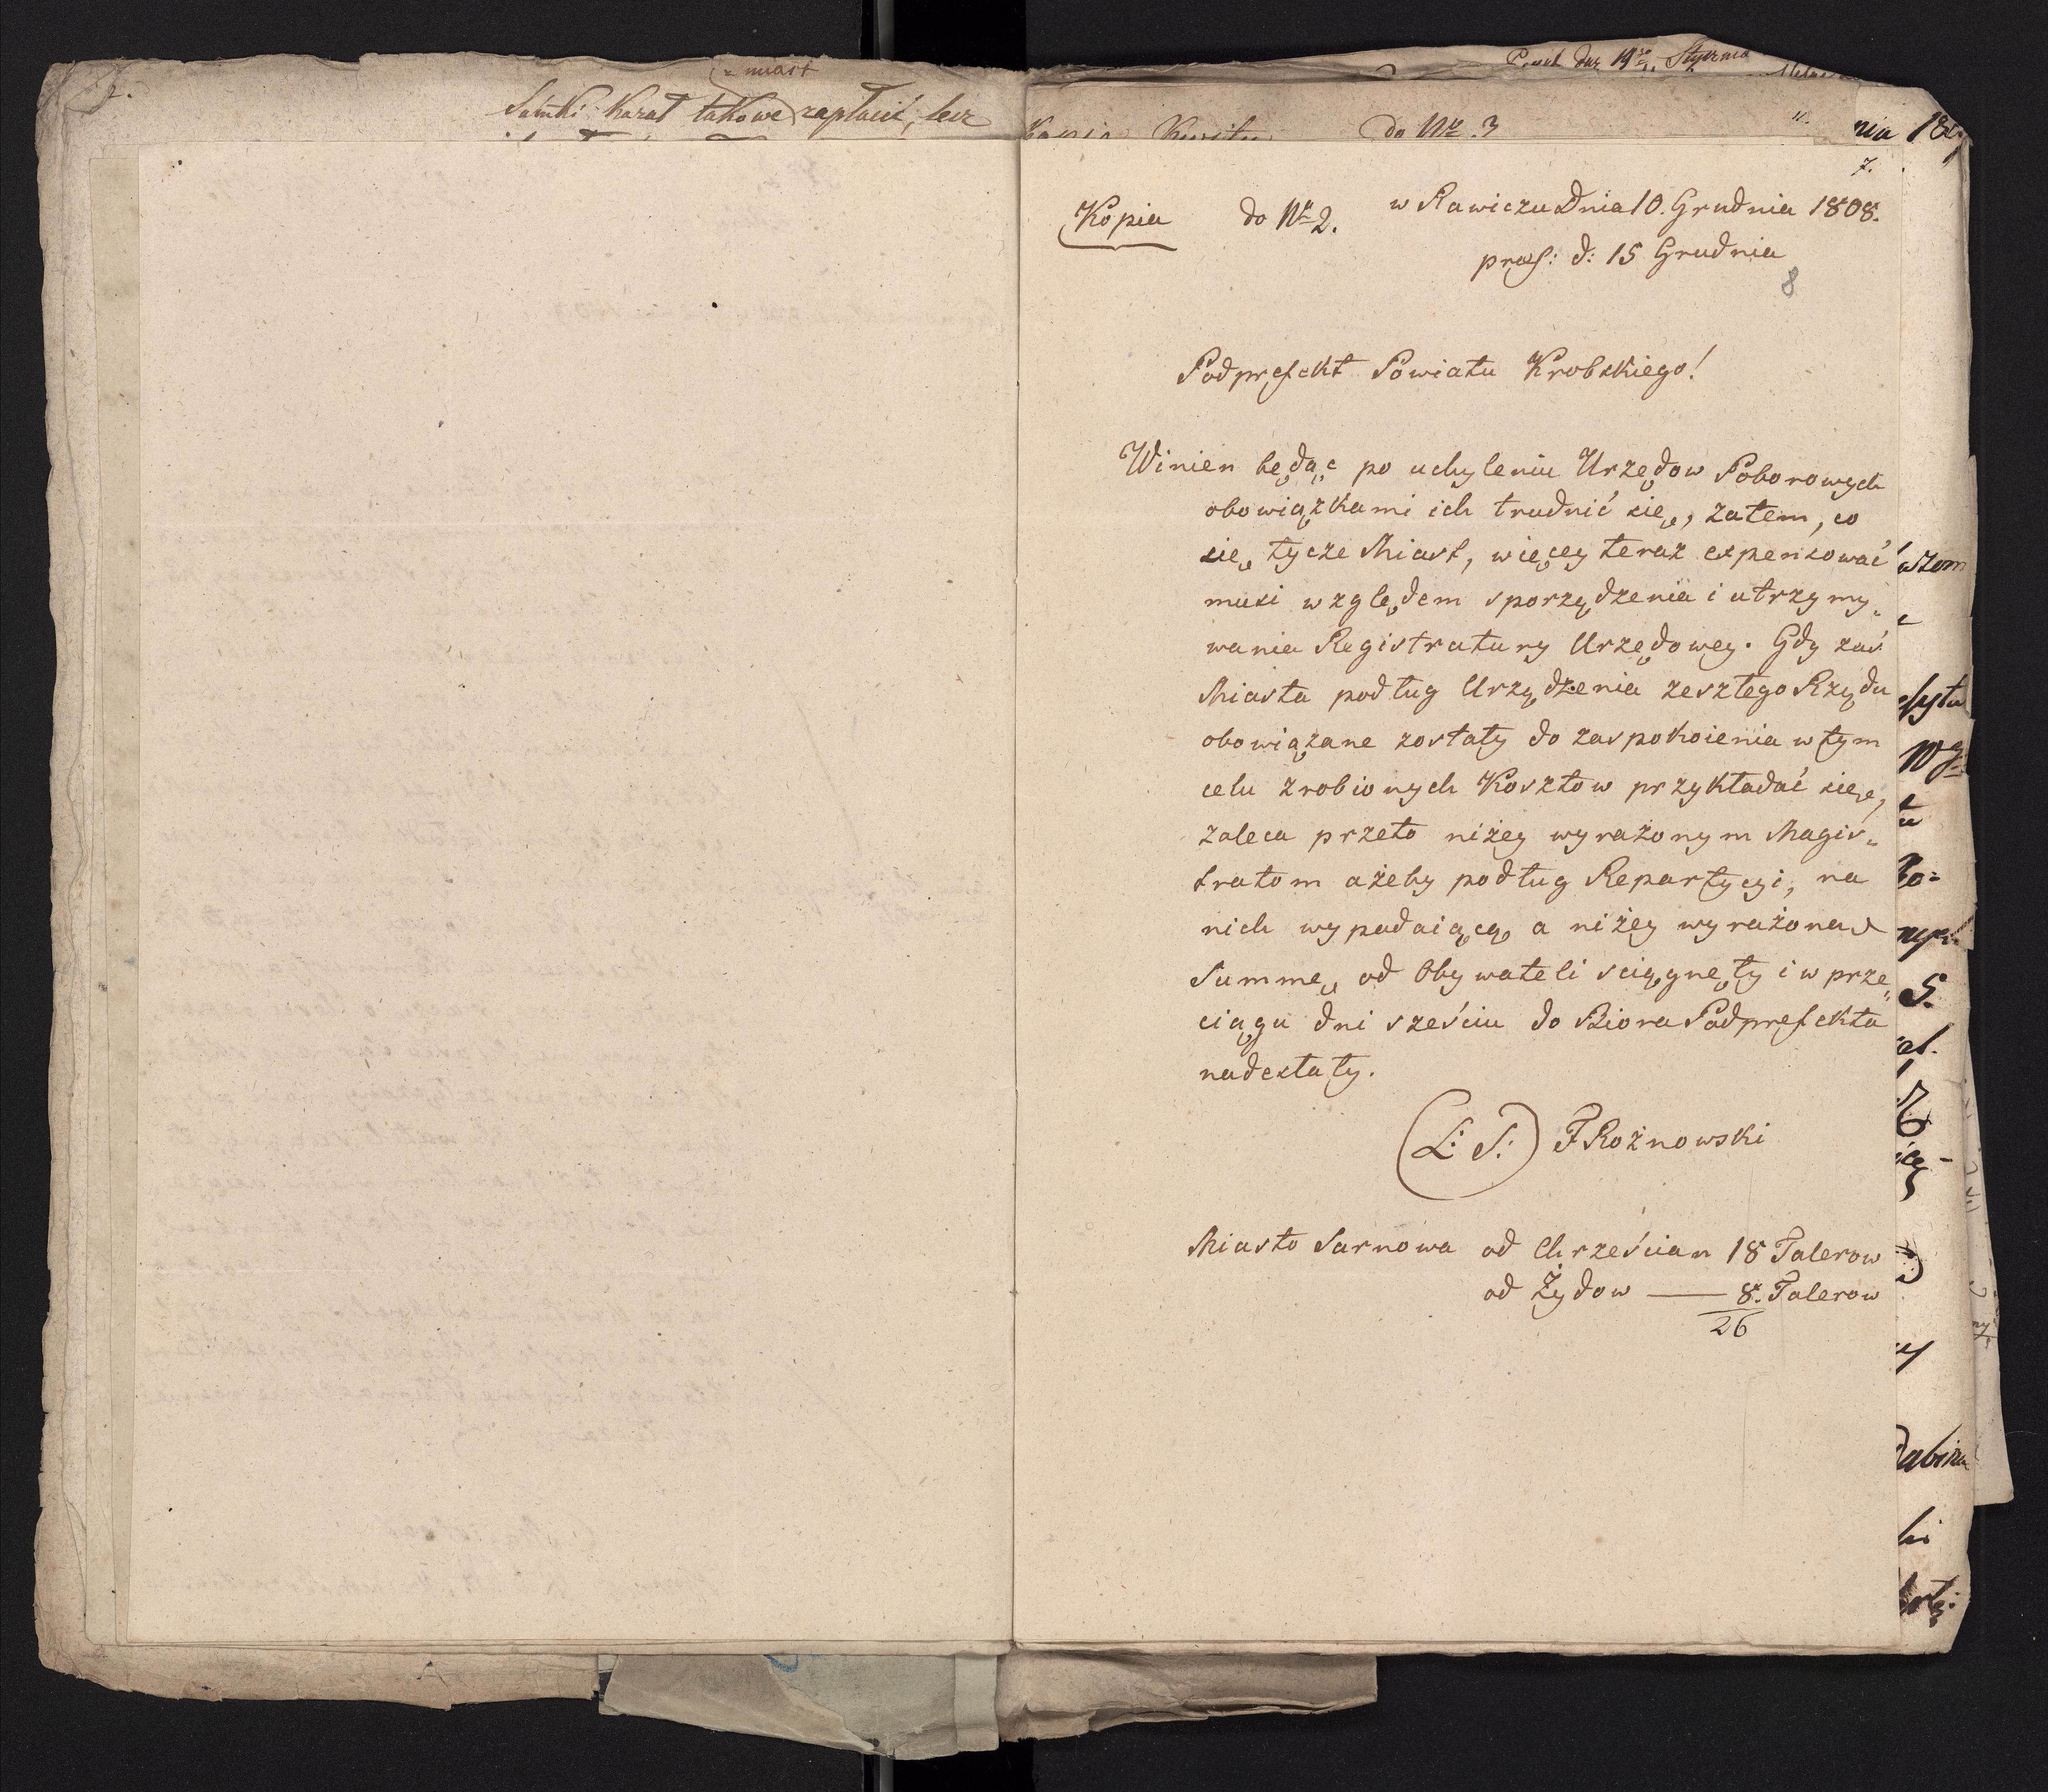 z miast
kazał takowe zapłacić, lecz
Stycznia
do Nr. 3
nia
7.
Kopia do Nr 2. w Rawiczu Dnia 10. Grudnia 1808.
præs: d: 15 Grudnia
8
Podprefekt Powiatu Krobskiego!
Winien będąc po uchyleniu Urzędow Poborowych
obowiązkami ich trudnić się, zatem, co
się tycze Miast, więcey teraz expensować
musi względem sporządzenia i utrzymy„
wania Registratury Urzędowey. Gdy zaś
Miasta podług Urządzenia zeszłego Rządu
obowiązane zostały do zaspokoienia w tym
celu zrobionych Kosztow przykładać się,
zaleca przeto niżey wyrażonym Magis„
tratom ażeby podług Repartycyi, na
nich wypadaiącą a niżey wyrażoną
Summę od Obywateli sciągnęły i w prze„
ciągu dni sześciu do Biora Podprefekta
nadesłały.
(L: S:) F Rożnowski
Miasto Sarnowa od Chrześcian 18 Talerow
od Żydow — 8. Talerow
26